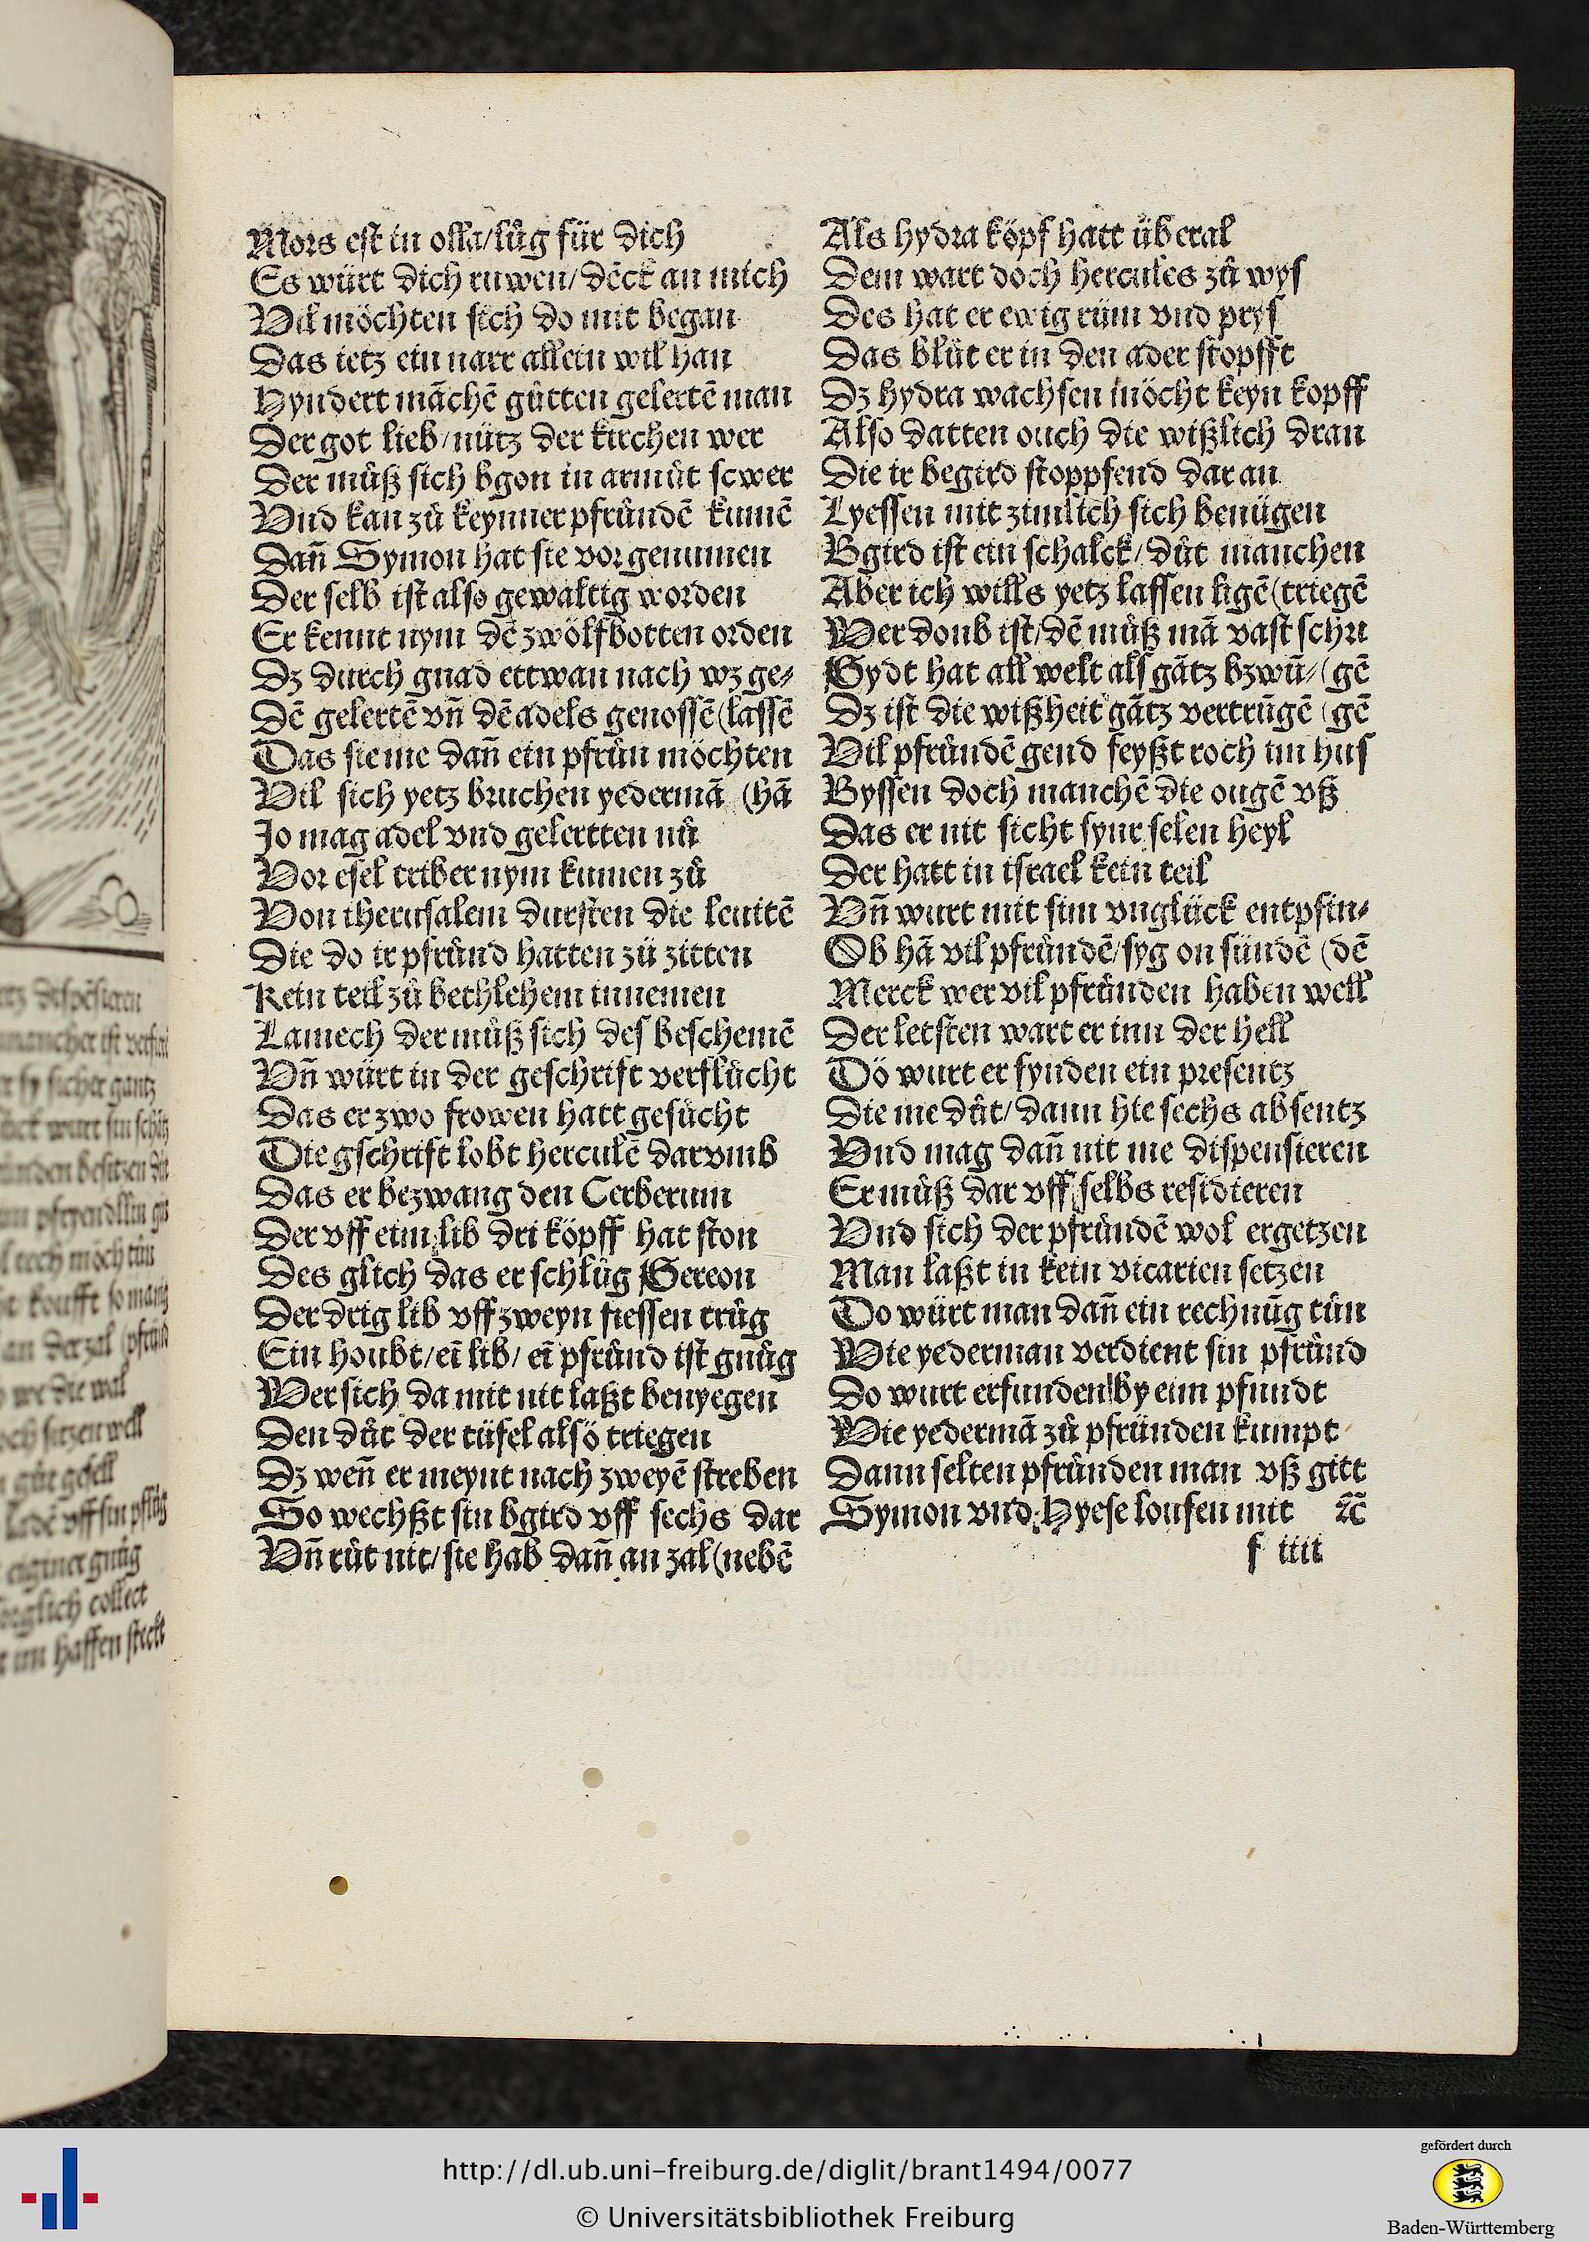 Mors est in olla/lůg für dich
Es würt dich ruwen/dēck an mich
Vil möchten sich do mit began
Das ietz ein narr allein wil han
Hyndert māchē gůtten gelertē man
Der got lieb/nütz der kirchen wer
Der můß sich bgon in armůt scwer
Vnd kan zů keynner pfrůndē kumē
Dañ Symon hat sie vor genummen
Der selb ist also gewaltig worden
Er kennt nym dē zwölfbotten orden
Dz durch gnad ettwan nach wz ge⸗
Dē gelertē vñ dē adels genossē (lassē
Das sie me dañ ein pfrůn möchten
Vil sich yetz bruchen yedermā (hā
Jo mag adel vnd gelertten nů
Vor esel triber nym kumen zů
Von iherusalem dursten die leuitē
Die do ir pfrůnd hatten zü zitten
Kein teil zů bethlehem innemen
Lamech der můß sich des beschemē
Vñ würt in der geschrift verflůcht
Das er zwo frowen hatt gesücht
Die gschrift lobt herculē darvmb
Das er bezwang den Cerberum
Der vff eim lib dri köpff hat ston
Des glich das er schlůg Gereon
Der drig lib vff zweyn fiessen trůg
Ein houbt/eī lib/eī pfrůnd ist gnůg
Wer sich da mit nit laßt benyegen
Den důt der tüfel alsö triegen
Dz weñ er meynt nach zweyē streben
So wechßt sin bgird vff sechs dar
Vñ růt nit/sie hab dañ an zal (nebē
Als hydra köpf hatt überal
Dem wart doch hercules zů wys
Des hat er ewig rům vnd prys
Das blůt er in den ader stopfft
Dz hydra wachsen möcht keyn kopff
Also datten ouch die wißlich dran
Die ir begird stoppfend dar an
Lyessen mit zimlich sich benügen
Bgird ist ein schalck/důt manchen
Aber ich wills yetz lassen ligē (triegē
Wer doub ist/dē můß mā vast schri
Gydt hat all welt als gātz bzwū⸗ (gē
Dz ist die wißheit gātz vertrūgē (gē
Vil pfründē gend feyßt roch im hus
Byssen doch manchē die ougē vß
Das er nit sicht synr selen heyl
Der hatt in israel kein teil
Vñ wurt mit sim vnglück entpfin⸗
Ob hā vil pfrůndē/syg on sündē (dē
Merck wer vil pfrůnden haben well
Der letsten wart er inn der hell
Dö wurt er fynden ein presentz
Die me důt/dann hie sechs absentz
Vnd mag dañ nit me dispensieren
Er můß dar vff selbs residieren
Vnd sich der pfründē wol ergetzen
Man laßt in kein vicarien setzen
Do würt man dañ ein rechnūg tůn
Wie yederman verdient sin pfrůnd
Do wurt erfunden by eim pfundt
Wie yedermā zů pfründen kumpt
Dann selten pfrůnden man vß gitt
Symon vnd Hyese loufen mit ꝛc̄
f iiii
http://dl.ub.uni-freiburg.de/diglit/brant1494/0077
© Universitätsbibliothek Freiburg
gefördert durch
Baden-Württemberg